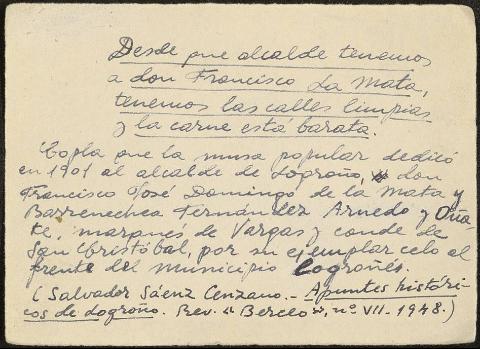 Desde que alcalde tenemos
a don Francisco La Mata,
tenemos las calles limpias
y la carne está barata.
Copla que la musa popular dedicó
en 1901 al alcalde de Logroño, don
Francisco José Domingo de la Mata y
Barrenechea Fernández Arnedo y Oña-
te, marqués de Vargas y conde de
San Cristóbal, por su ejemplar celo al
frente del municipio logroñés.
(Salvador Sáenz Cenzano.- Apuntes históri-
cos de Logroño. Rev. "Berceo", nº VII.-1948.)